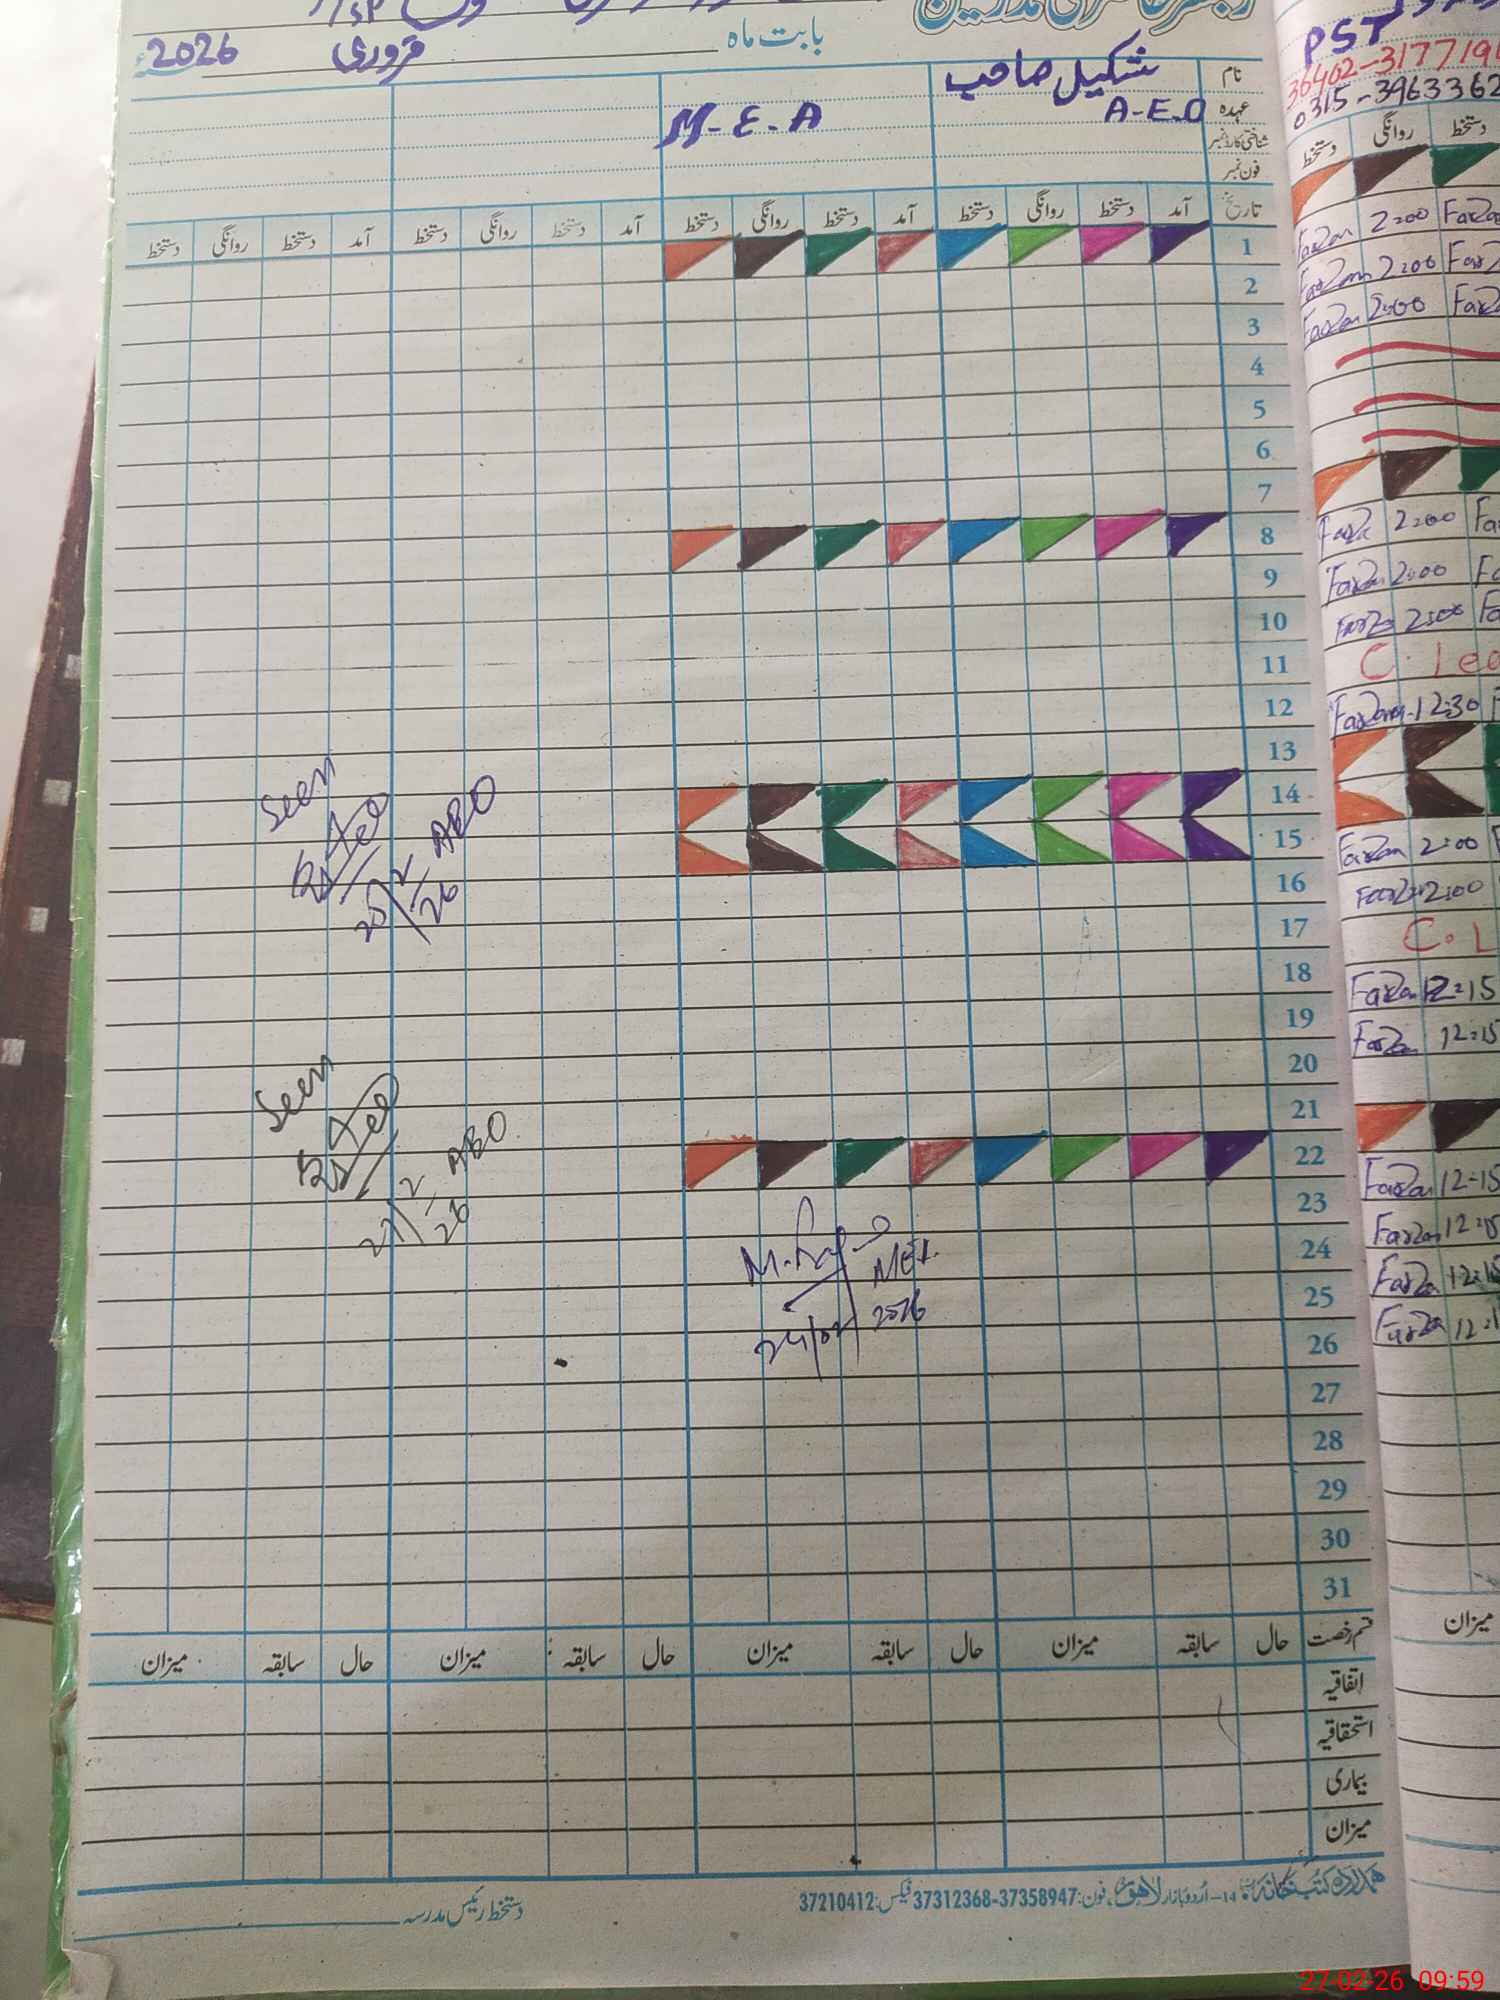 بابت ماہ فروری 2026
نام شکیل صاحب
عہدہ A-E-O M-E-A
شناختی کارڈ نمبر
فون نمبر
تاریخ آمد دستخط روانگی دستخط آمد دستخط روانگی دستخط آمد دستخط روانگی دستخط آمد دستخط روانگی دستخط
1
2
3
4
5
6
7
8
9
10
11
12
13
14
15
16
17
18
19
20
21
22
23
24
25
26
27
28
29
30
31
Seen
26
Seen
27/2/26
2026
قسم رخصت حال سابقہ میزان حال سابقہ میزان حال سابقہ میزان حال سابقہ میزان
اتفاقیہ
استحقاقیہ
بیماری
میزان
ہمدرد کتب خانہ 14-اُردو بازار لاہور فون: 37312368-37358947 فیکس: 37210412
دستخط رئیس مدرسہ
PST
0315-3963362
دستخط روانگی دستخط
Farzan 2:00
Farzan 2:00
Farzan 2:00
2:00
Farzan 2:00
2:00
C. Lea
Farzan 12:30
Farzan 2:00
2:00
C. L
Farzan 12:15
Farzan 12:15
Farzan 12:15
Farzan 12:15
Farzan 12:15
Farzan
میزان
27-02-26 09:59